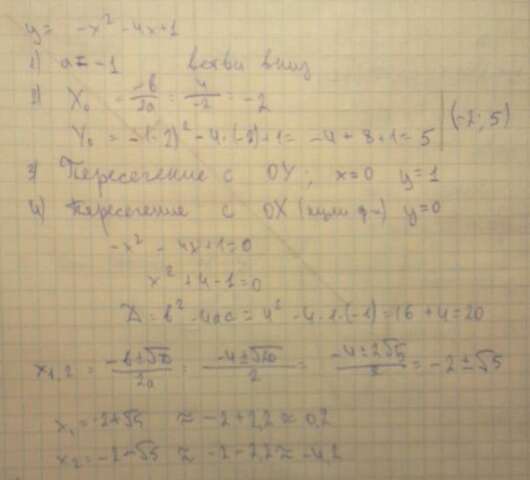 y = -x² - 4x + 1
1) a = -1 ветви вниз
2) X₀ = -b/2a = 4/-2 = -2
Y₀ = -(-2)² - 4·(-2) + 1 = -4 + 8 + 1 = 5 | (-2; 5)
3) Пересечение с OY; x=0 y=1
4) Пересечение с OX (нули ф-и) y=0
-x² - 4x + 1 = 0
x² + 4 - 1 = 0
D = b² - 4ac = 4² - 4·1·(-1) = 16 + 4 = 20
x₁,₂ = -b±√D/2a = -4±√20/2 = -4±2√5/2 = -2±√5
x₁ = -2+√5 ≈ -2+2,2 ≈ 0,2
x₂ = -2-√5 ≈ -2-2,2 ≈ -4,2